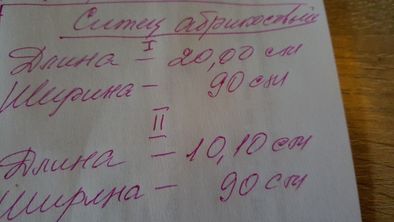 Ситец абрикосовый
I
Длина — 20,00 см
Ширина — 90 см
II
Длина — 10,10 см
Ширина — 90 см